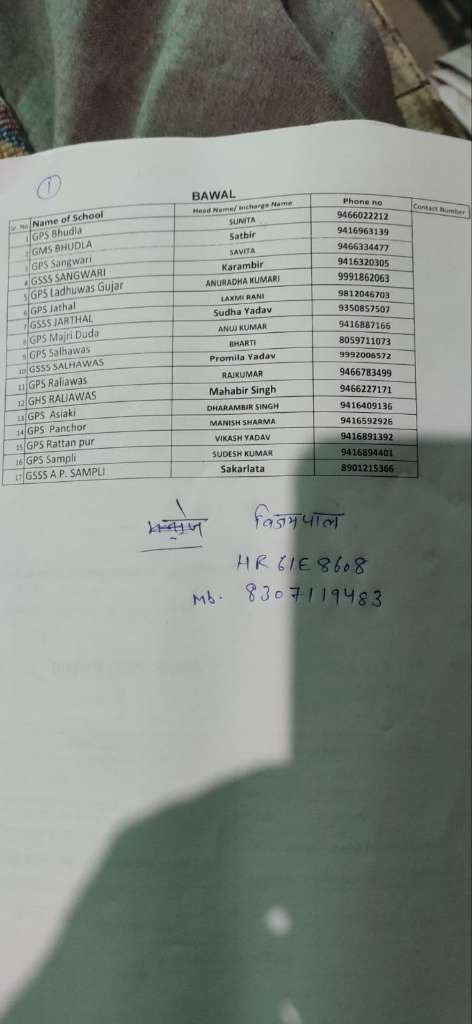 1
BAWAL
Sr. No Name of School Head Name/ Incharge Name Phone no Contact Number
1 GPS Bhudla SUNITA 9466022212
2 GMS BHUDLA Satbir 9416963139
3 GPS Sangwari SAVITA 9466334477
4 GSSS SANGWARI Karambir 9416320305
5 GPS Ladhuwas Gujar ANURADHA KUMARI 9991862063
6 GPS Jathal LAXMI RANI 9812046703
7 GSSS JARTHAL Sudha Yadav 9350857507
8 GPS Majri Duda ANUJ KUMAR 9416887166
9 GPS Salhawas BHARTI 8059711073
10 GSSS SALHAWAS Promila Yadav 9992006572
11 GPS Raliawas RAJKUMAR 9466783499
12 GHS RALIAWAS Mahabir Singh 9466227171
13 GPS Asiaki DHARAMBIR SINGH 9416409136
14 GPS Panchor MANISH SHARMA 9416592926
15 GPS Rattan pur VIKASH YADAV 9416891392
16 GPS Sampli SUDESH KUMAR 9416894401
17 GSSS A.P. SAMPLI Sakarlata 8901215366
विजयपाल
HR 61E 8608
Mb. 8307119483